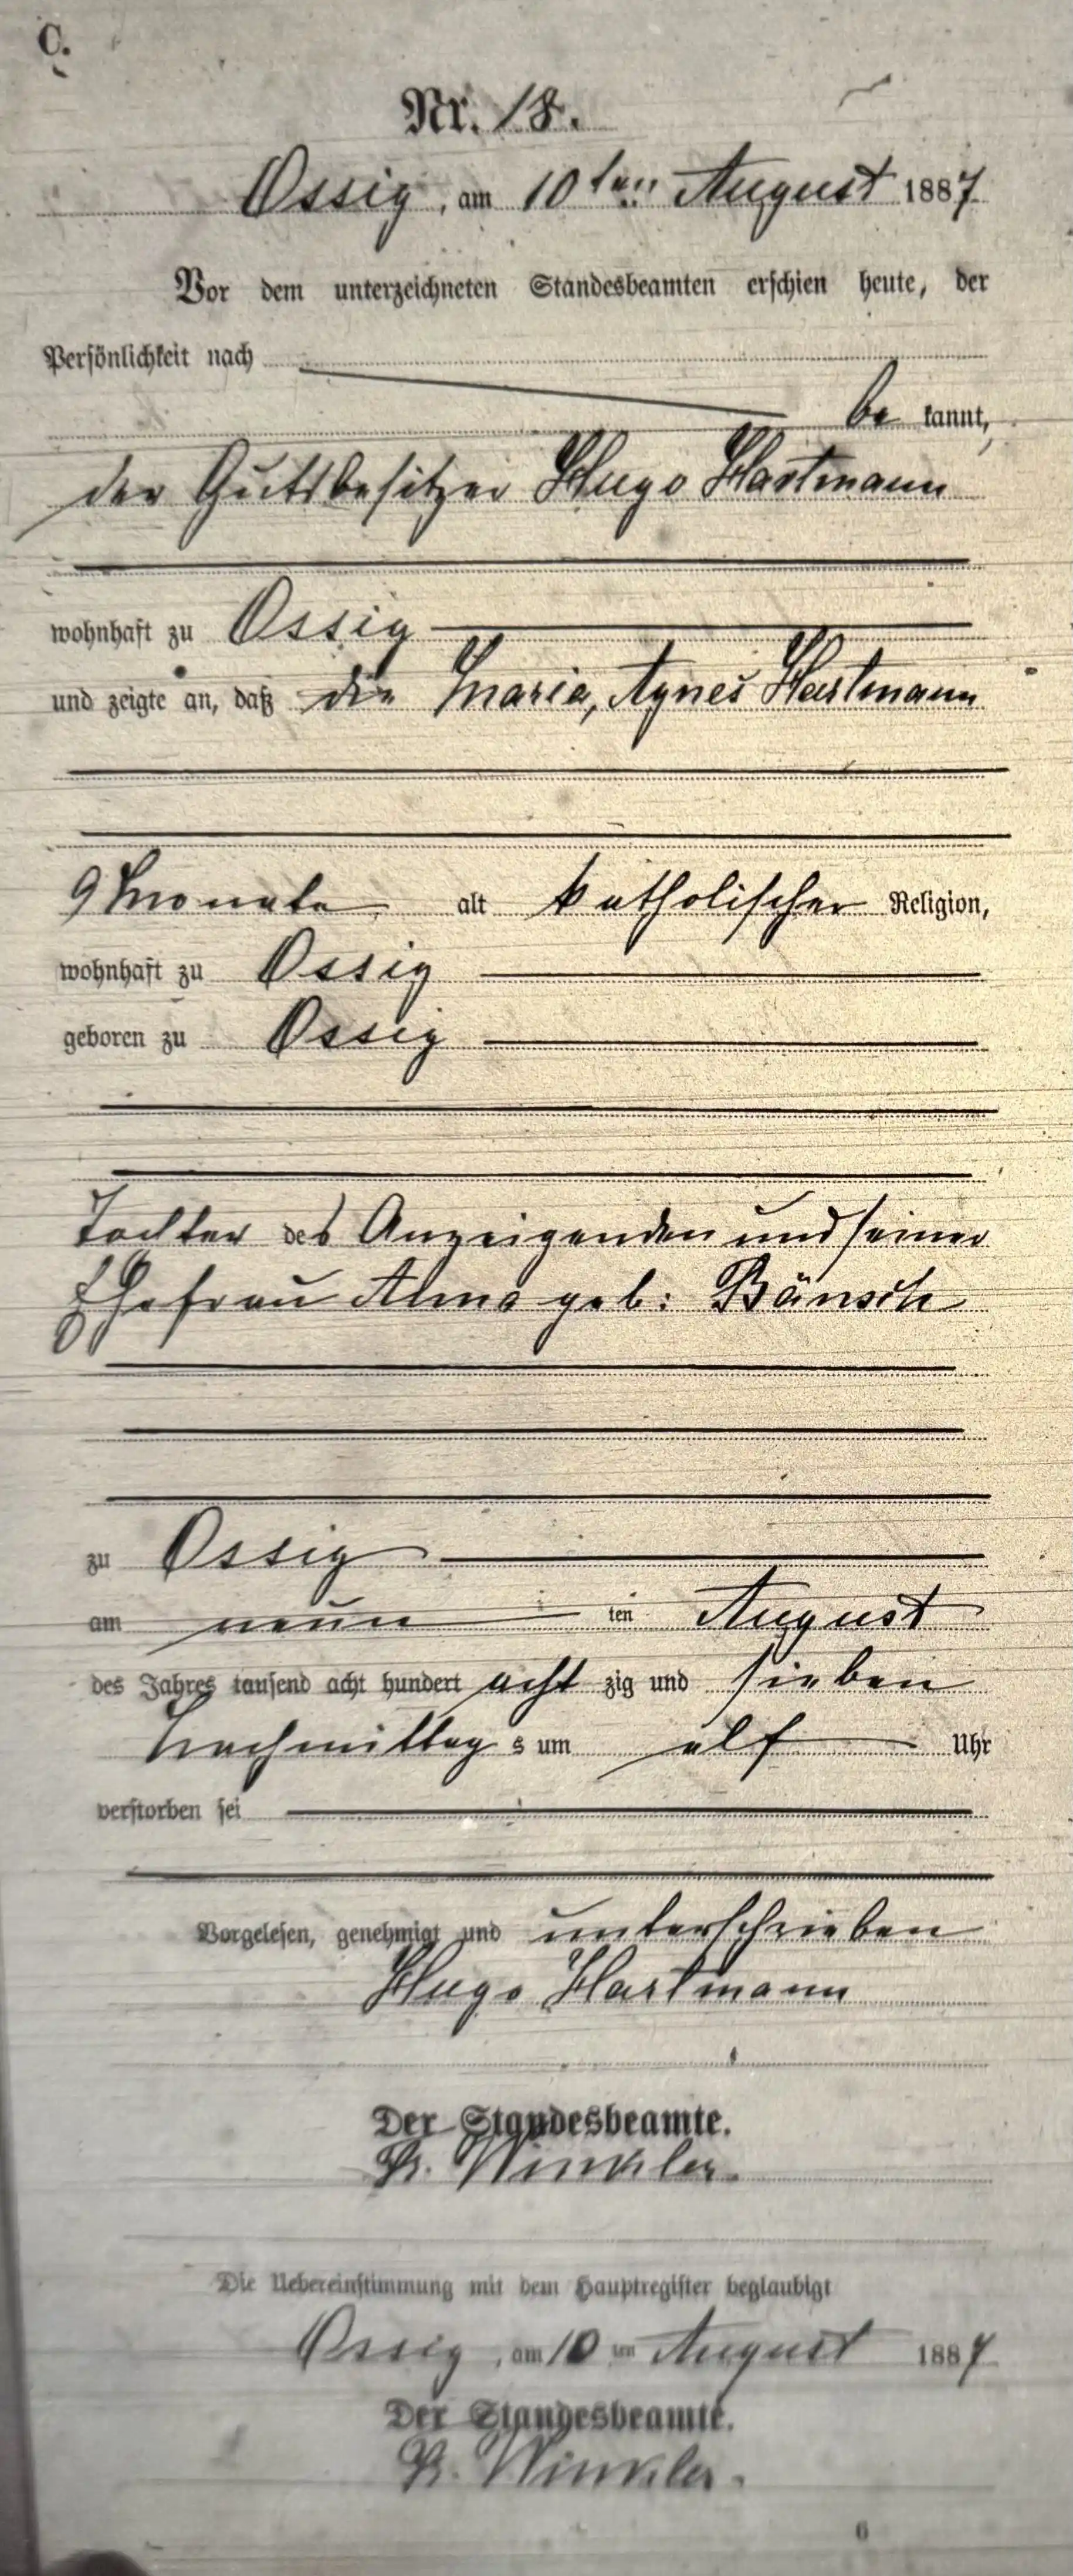 C.
Nr. 18.
Ossig, am 10ten August 1887
Vor dem unterzeichneten Standesbeamten erschien heute, der
Persönlichkeit nach
be kannt,
der Gutsbesitzer Hugo Hartmann
wohnhaft zu Ossig
und zeigte an, daß die Maria, Agnes Hartmann
9 Monate alt katholischer Religion,
wohnhaft zu Ossig
geboren zu Ossig
Tochter des Anzeigenden und seiner
Ehefrau Alma geb: Bänsch
zu Ossig
am neun ten August
des Jahres tausend acht hundert acht zig und sieben
Nachmittag s um elf Uhr
verstorben sei
Vorgelesen, genehmigt und unterschrieben
Hugo Hartmann
Der Standesbeamte.
Winkler.
Die Uebereinstimmung mit dem Hauptregister beglaubigt
Ossig, am 10 ten August 1887
Der Standesbeamte.
Winkler.
6